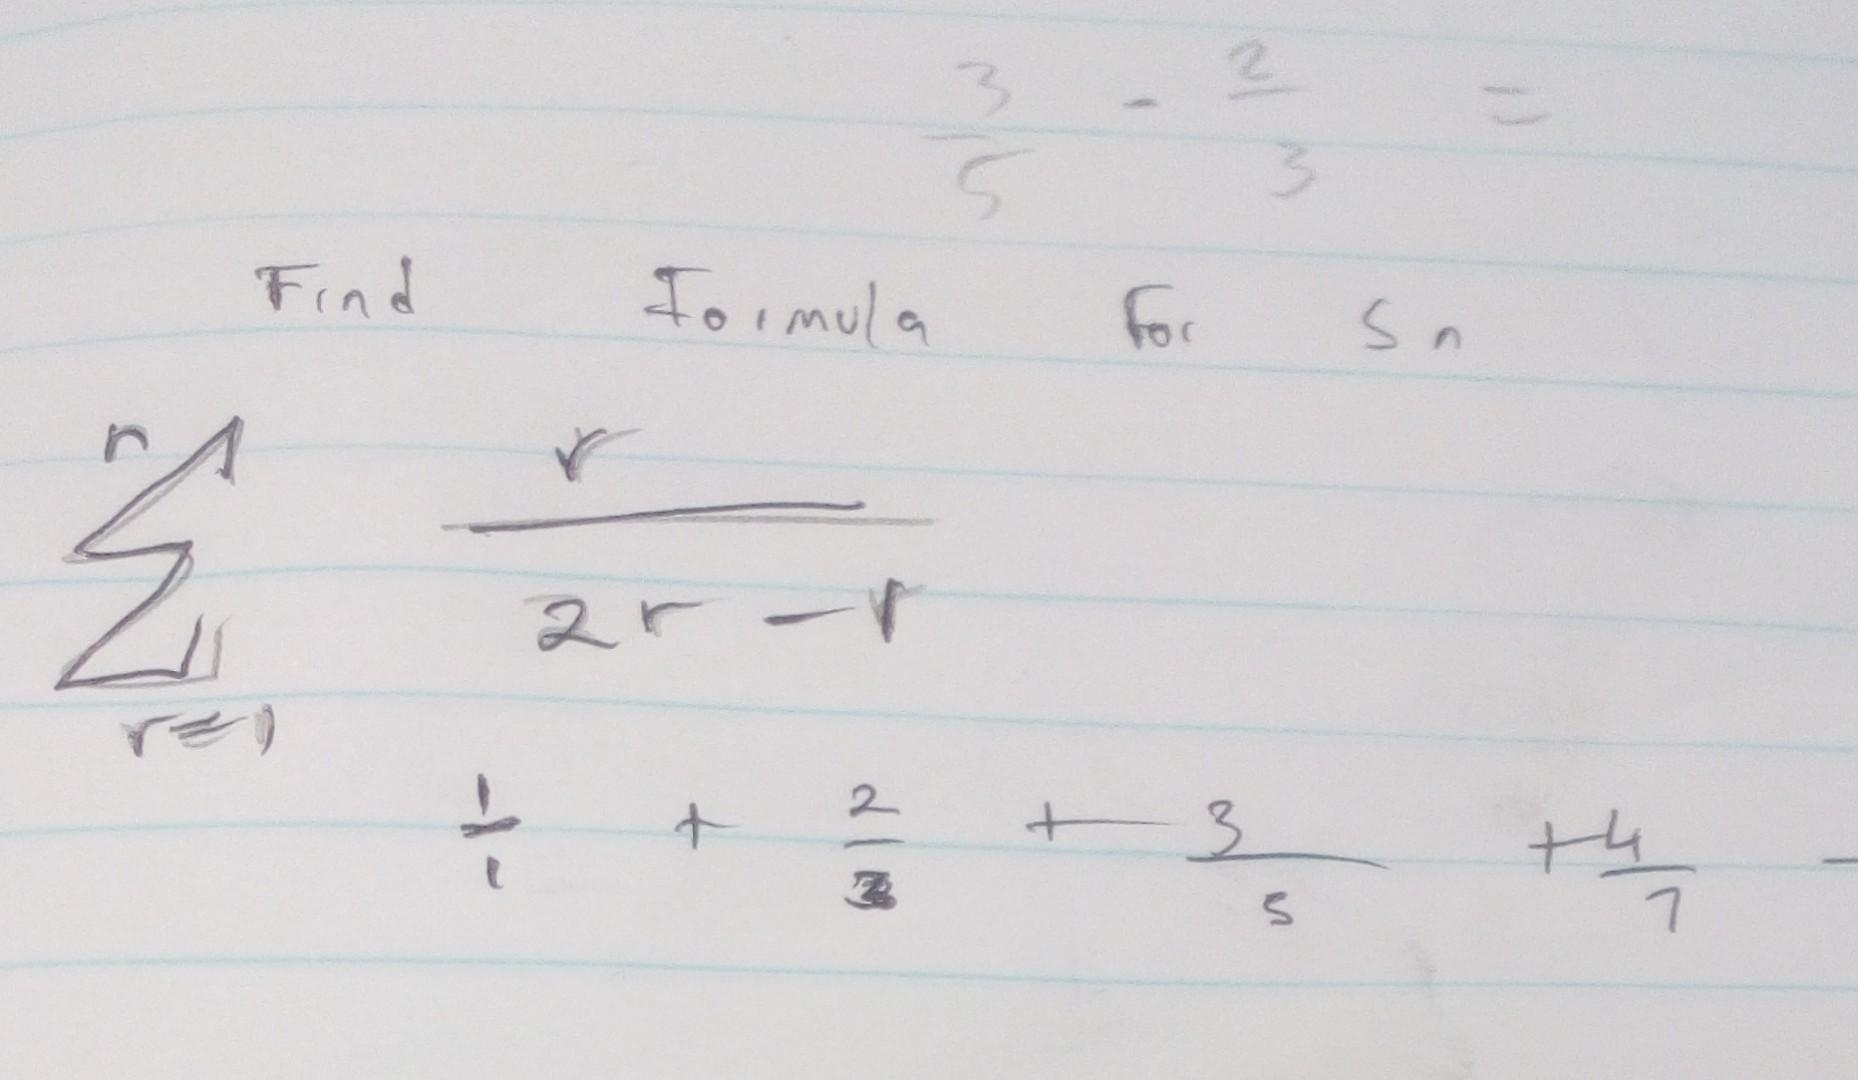 3/5 - 2/3 =
Find Formula For Sn
n
∑ r/(2r - r)
r=1
1/1 + 2/3 + 3/5 + 4/7 -